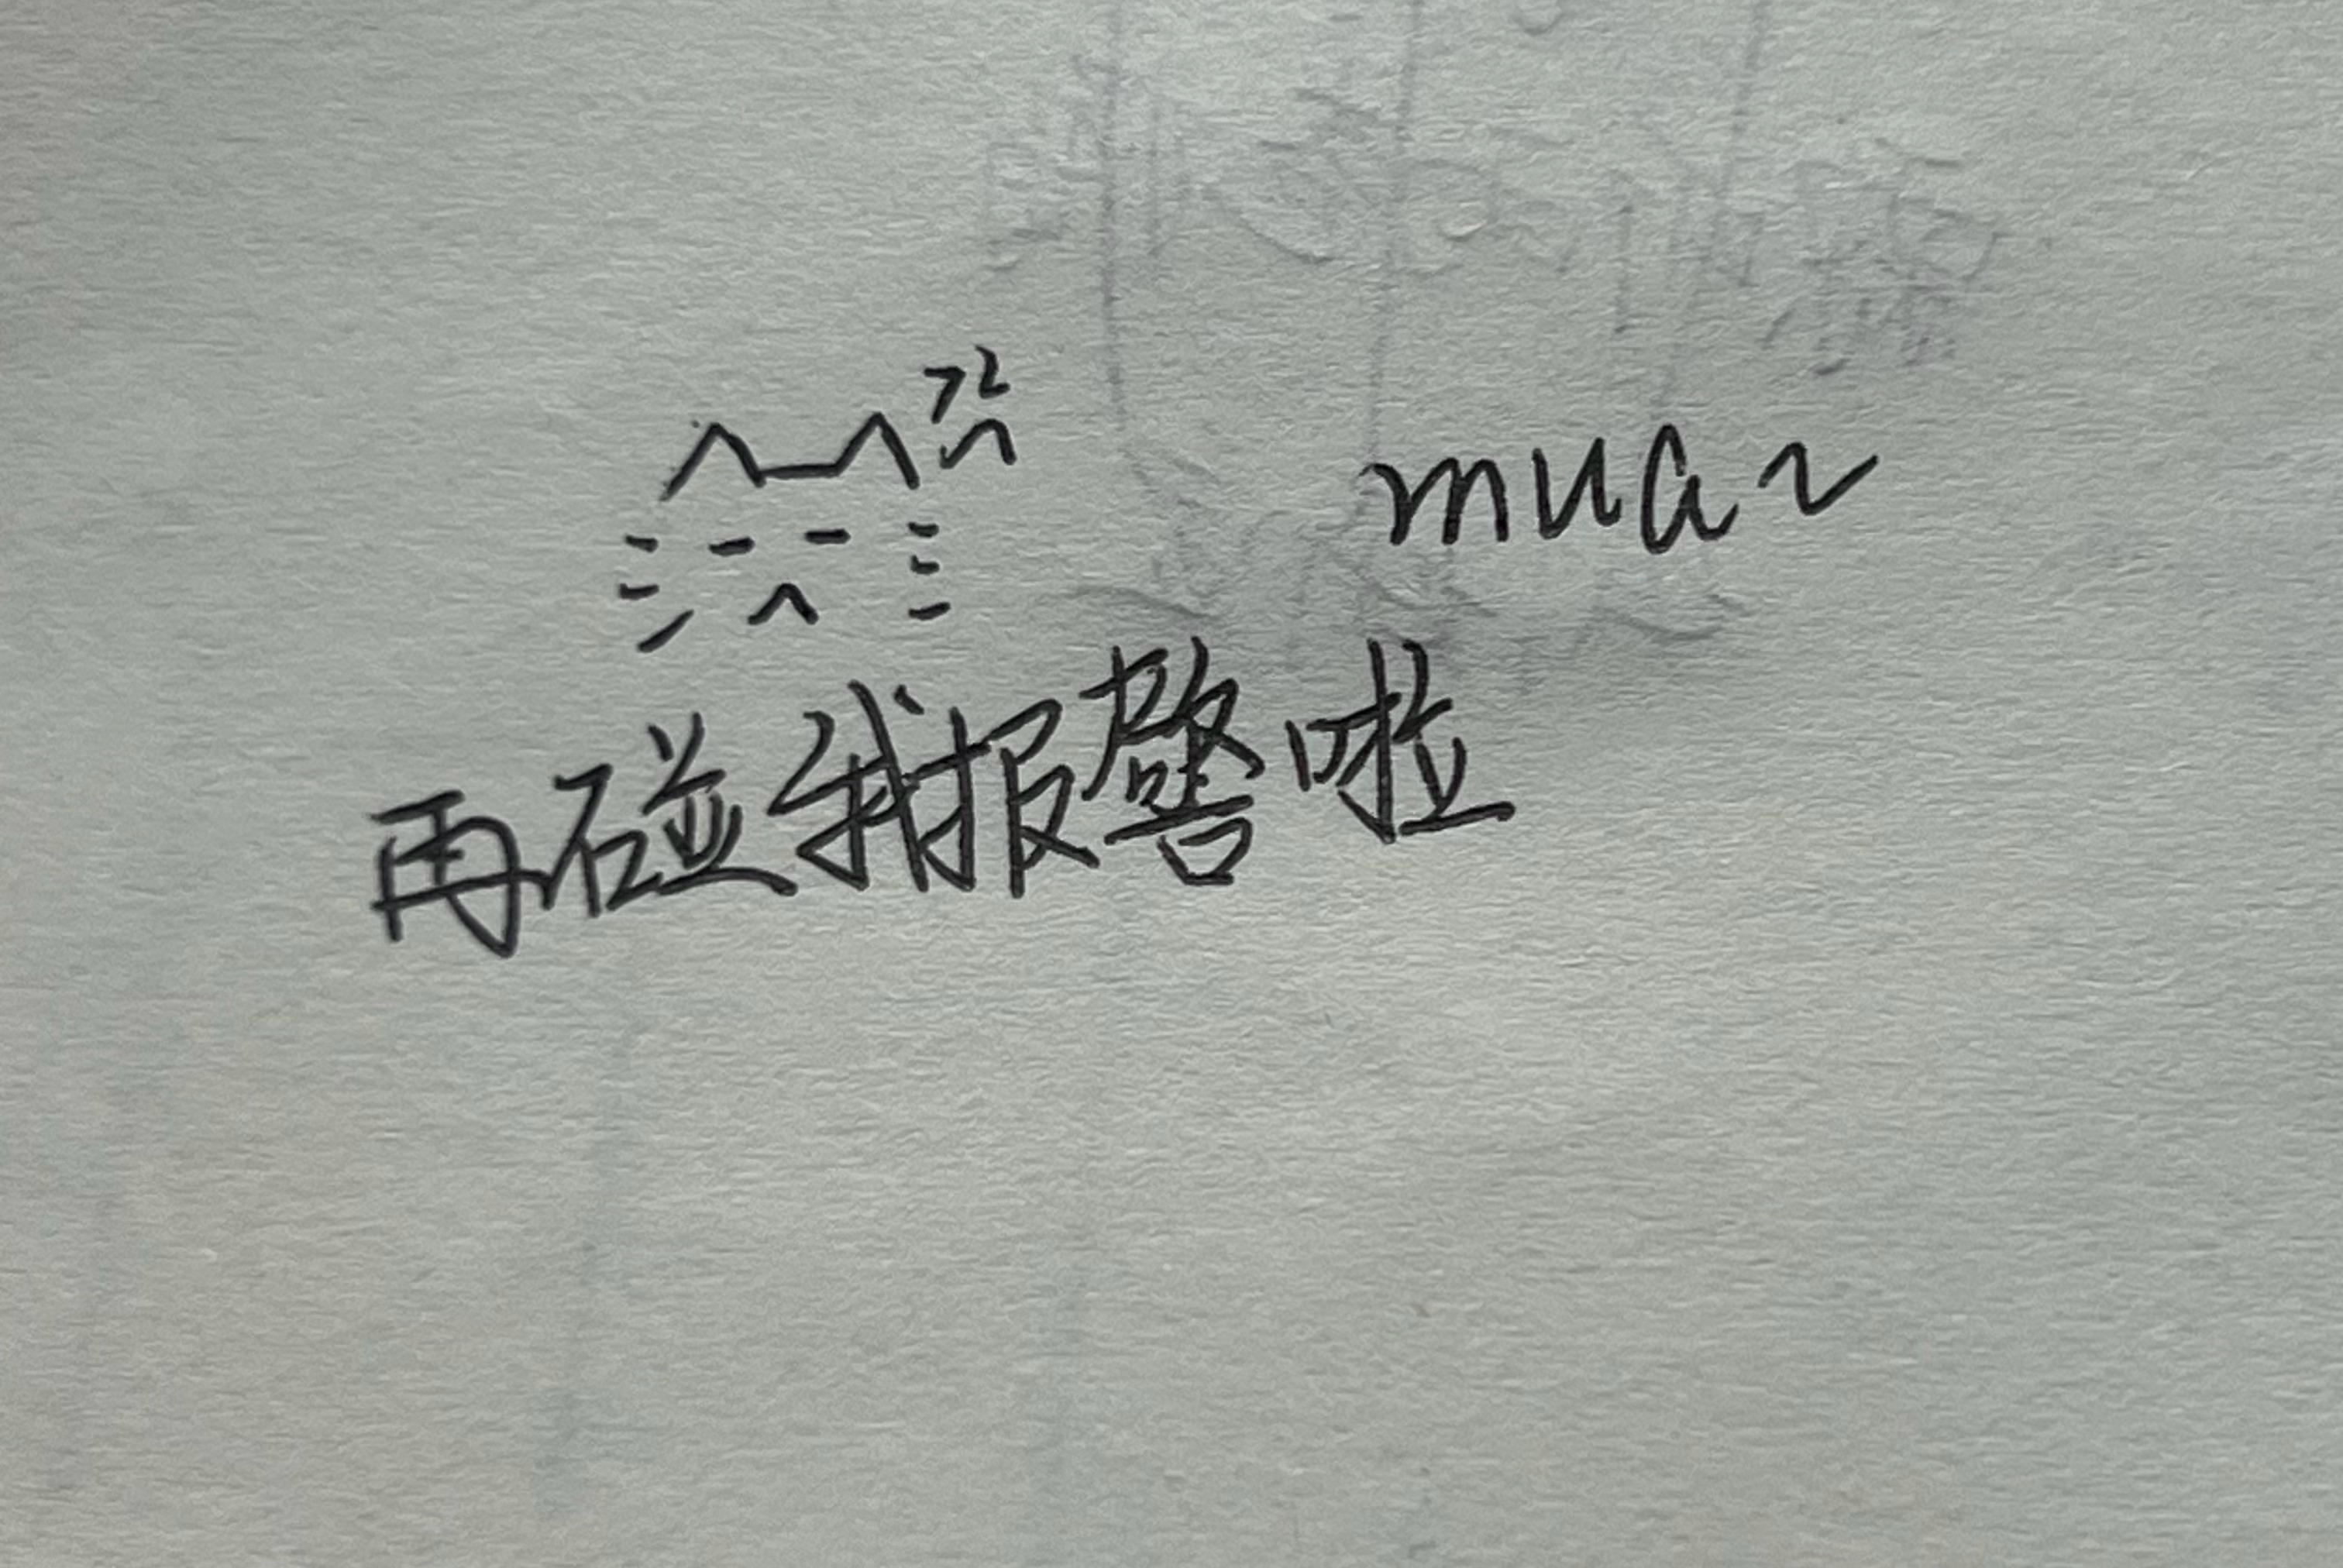 mua~
再碰我报警啦